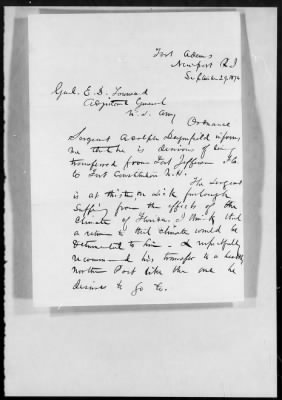 Fort Adams
Newport R.I
September 29, 1874
Genl. E. D. Townsend
Adjutant General
U. S. Army
Ordnance
Sergeant Adolph informs
me that he is desirous of being
transferred from Fort Jefferson Fla
to Fort Constitution N.H.
The Sergeant
is at this time on sick furlough
suffering from the effects of the
climate of Florida. I think that
a return to that climate would be
detrimental to him. I respectfully
recommend his transfer to a healthy
northern Post like the one he
desires to go to.